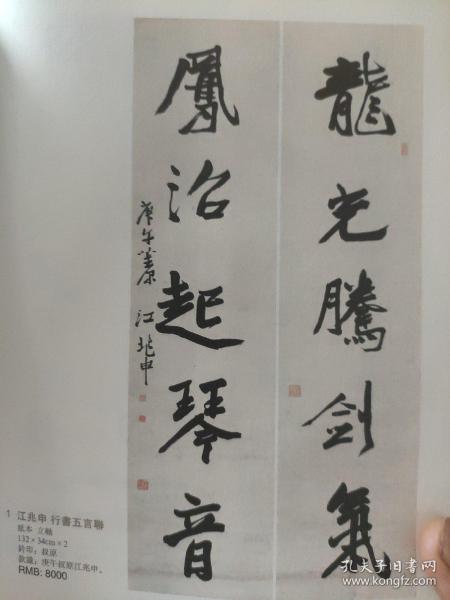 龍光騰劍氣
鳳沼起琴音
庚午叔原 江兆申
1 江兆申 行書五言聯
紙本 立軸
132×34cm×2
鈐印：叔原
款識：庚午叔原江兆申。
RMB: 8000
孔夫子旧书网